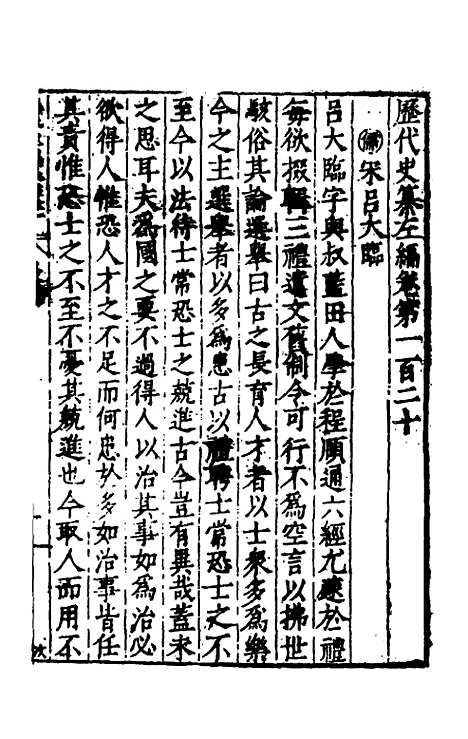 歷代史纂左編卷第一百二十
儒 宋呂大臨
呂大臨字與叔藍田人學於程頤通六經尤邃於禮
每欲掇輯三禮遺文舊制令可行不為空言以拂世
駭俗其論選舉曰古之長育人才者以士衆多為樂
今之主選舉者以多為患古以禮聘士常恐士之不
至今以法待士常恐士之競進古今豈有異哉蓋未
之思耳夫為國之要不過得人以治其事如為治必
欲得人惟恐人才之不足而何患於多如治事皆任
其責惟恐士之不至不憂其競進也今取人而用不